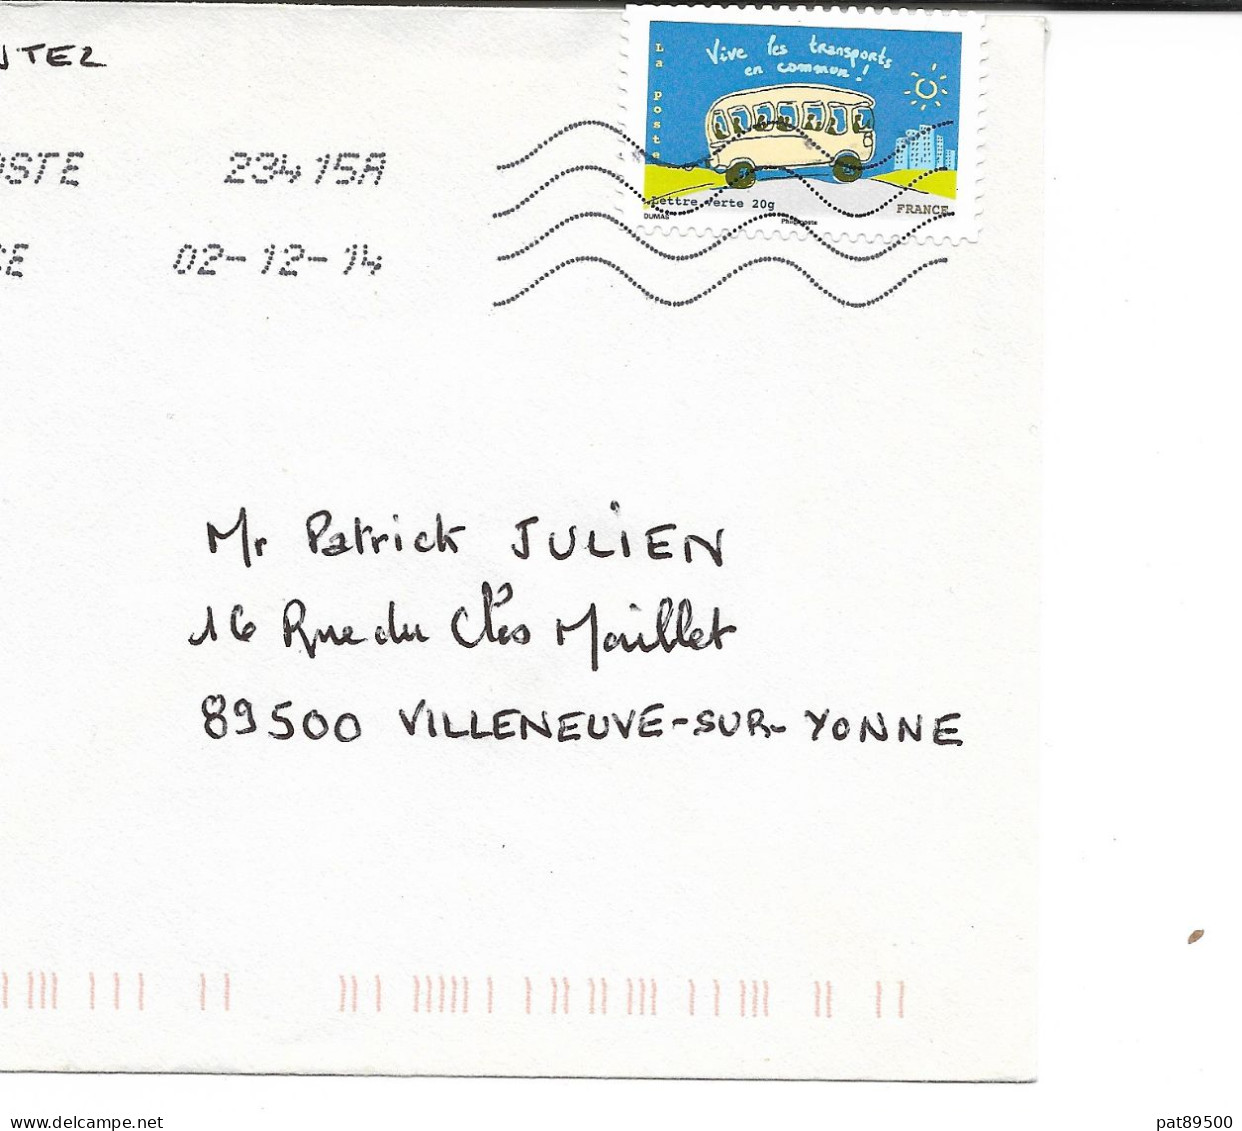 NTEZ
La poste
Vive les transports
en commun !
Lettre Verte 20g
FRANCE
DUMAS
Phil@poste
OSTE 23415A
CE 02-12-14
Mr Patrick JULIEN
16 Rue du Clos Maillet
89500 VILLENEUVE-SUR-YONNE
delcampe.net
pat89500